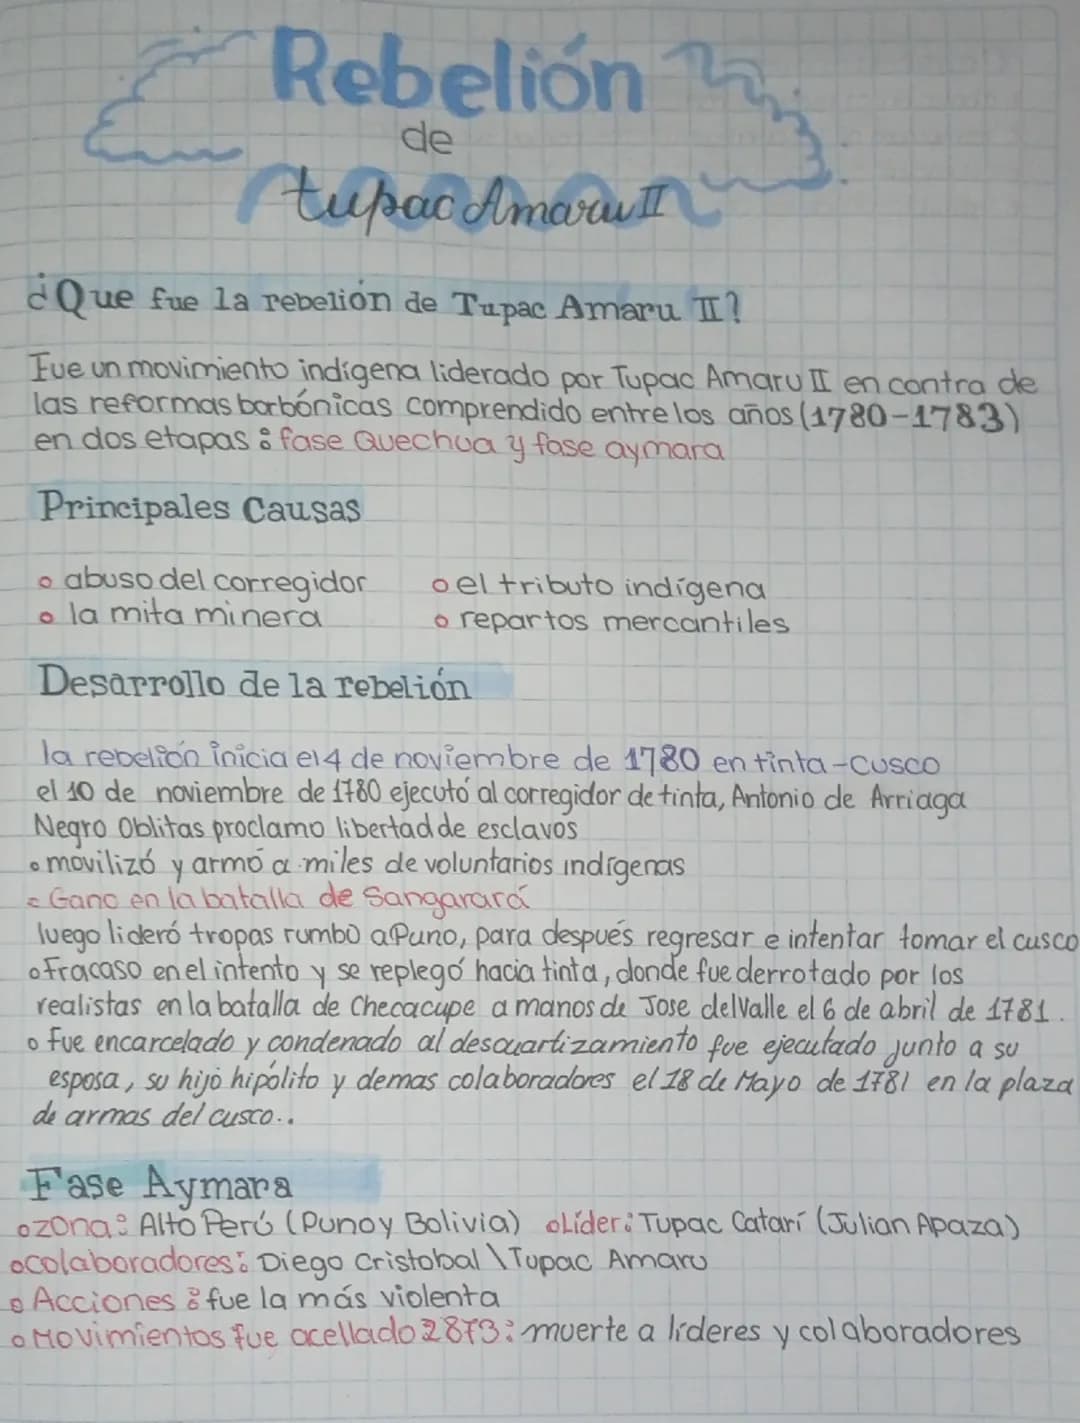 Rebelión
de
tupac Amaru II
¿Que fue la rebelión de Tupac Amaru II?
Fue un movimiento indígena liderado por Tupac Amaru II en contra de
las reformas borbónicas comprendido entre los años (1780-1783)
en dos etapas: fase Quechua y fase aymara
Principales Causas
o abuso del corregidor o el tributo indígena
o la mita minera o repartos mercantiles
Desarrollo de la rebelión
la rebelión inicia el 4 de noviembre de 1780 en tinta-cusco
el 10 de noviembre de 1780 ejecutó al corregidor de tinta, Antonio de Arriaga
Negro Oblitas proclamo libertad de esclavos
o movilizó y armó a miles de voluntarios indígenas
o Gano en la batalla de Sangarará
luego lideró tropas rumbo a Puno, para después regresar e intentar tomar el cusco
o Fracaso en el intento y se replegó hacia tinta, donde fue derrotado por los
realistas en la batalla de Checacupe a manos de Jose del Valle el 6 de abril de 1781.
o fue encarcelado y condenado al descuartizamiento fue ejecutado junto a su
esposa, su hijo hipólito y demas colaboradores el 18 de Mayo de 1781 en la plaza
de armas del cusco..
Fase Aymara
o zona: Alto Perú (Puno y Bolivia) o Líder: Tupac Catarí (Julian Apaza)
o colaboradores: Diego Cristobal \ Tupac Amaru
o Acciones: fue la más violenta
o Movimientos fue acellado 2873: muerte a líderes y colaboradores